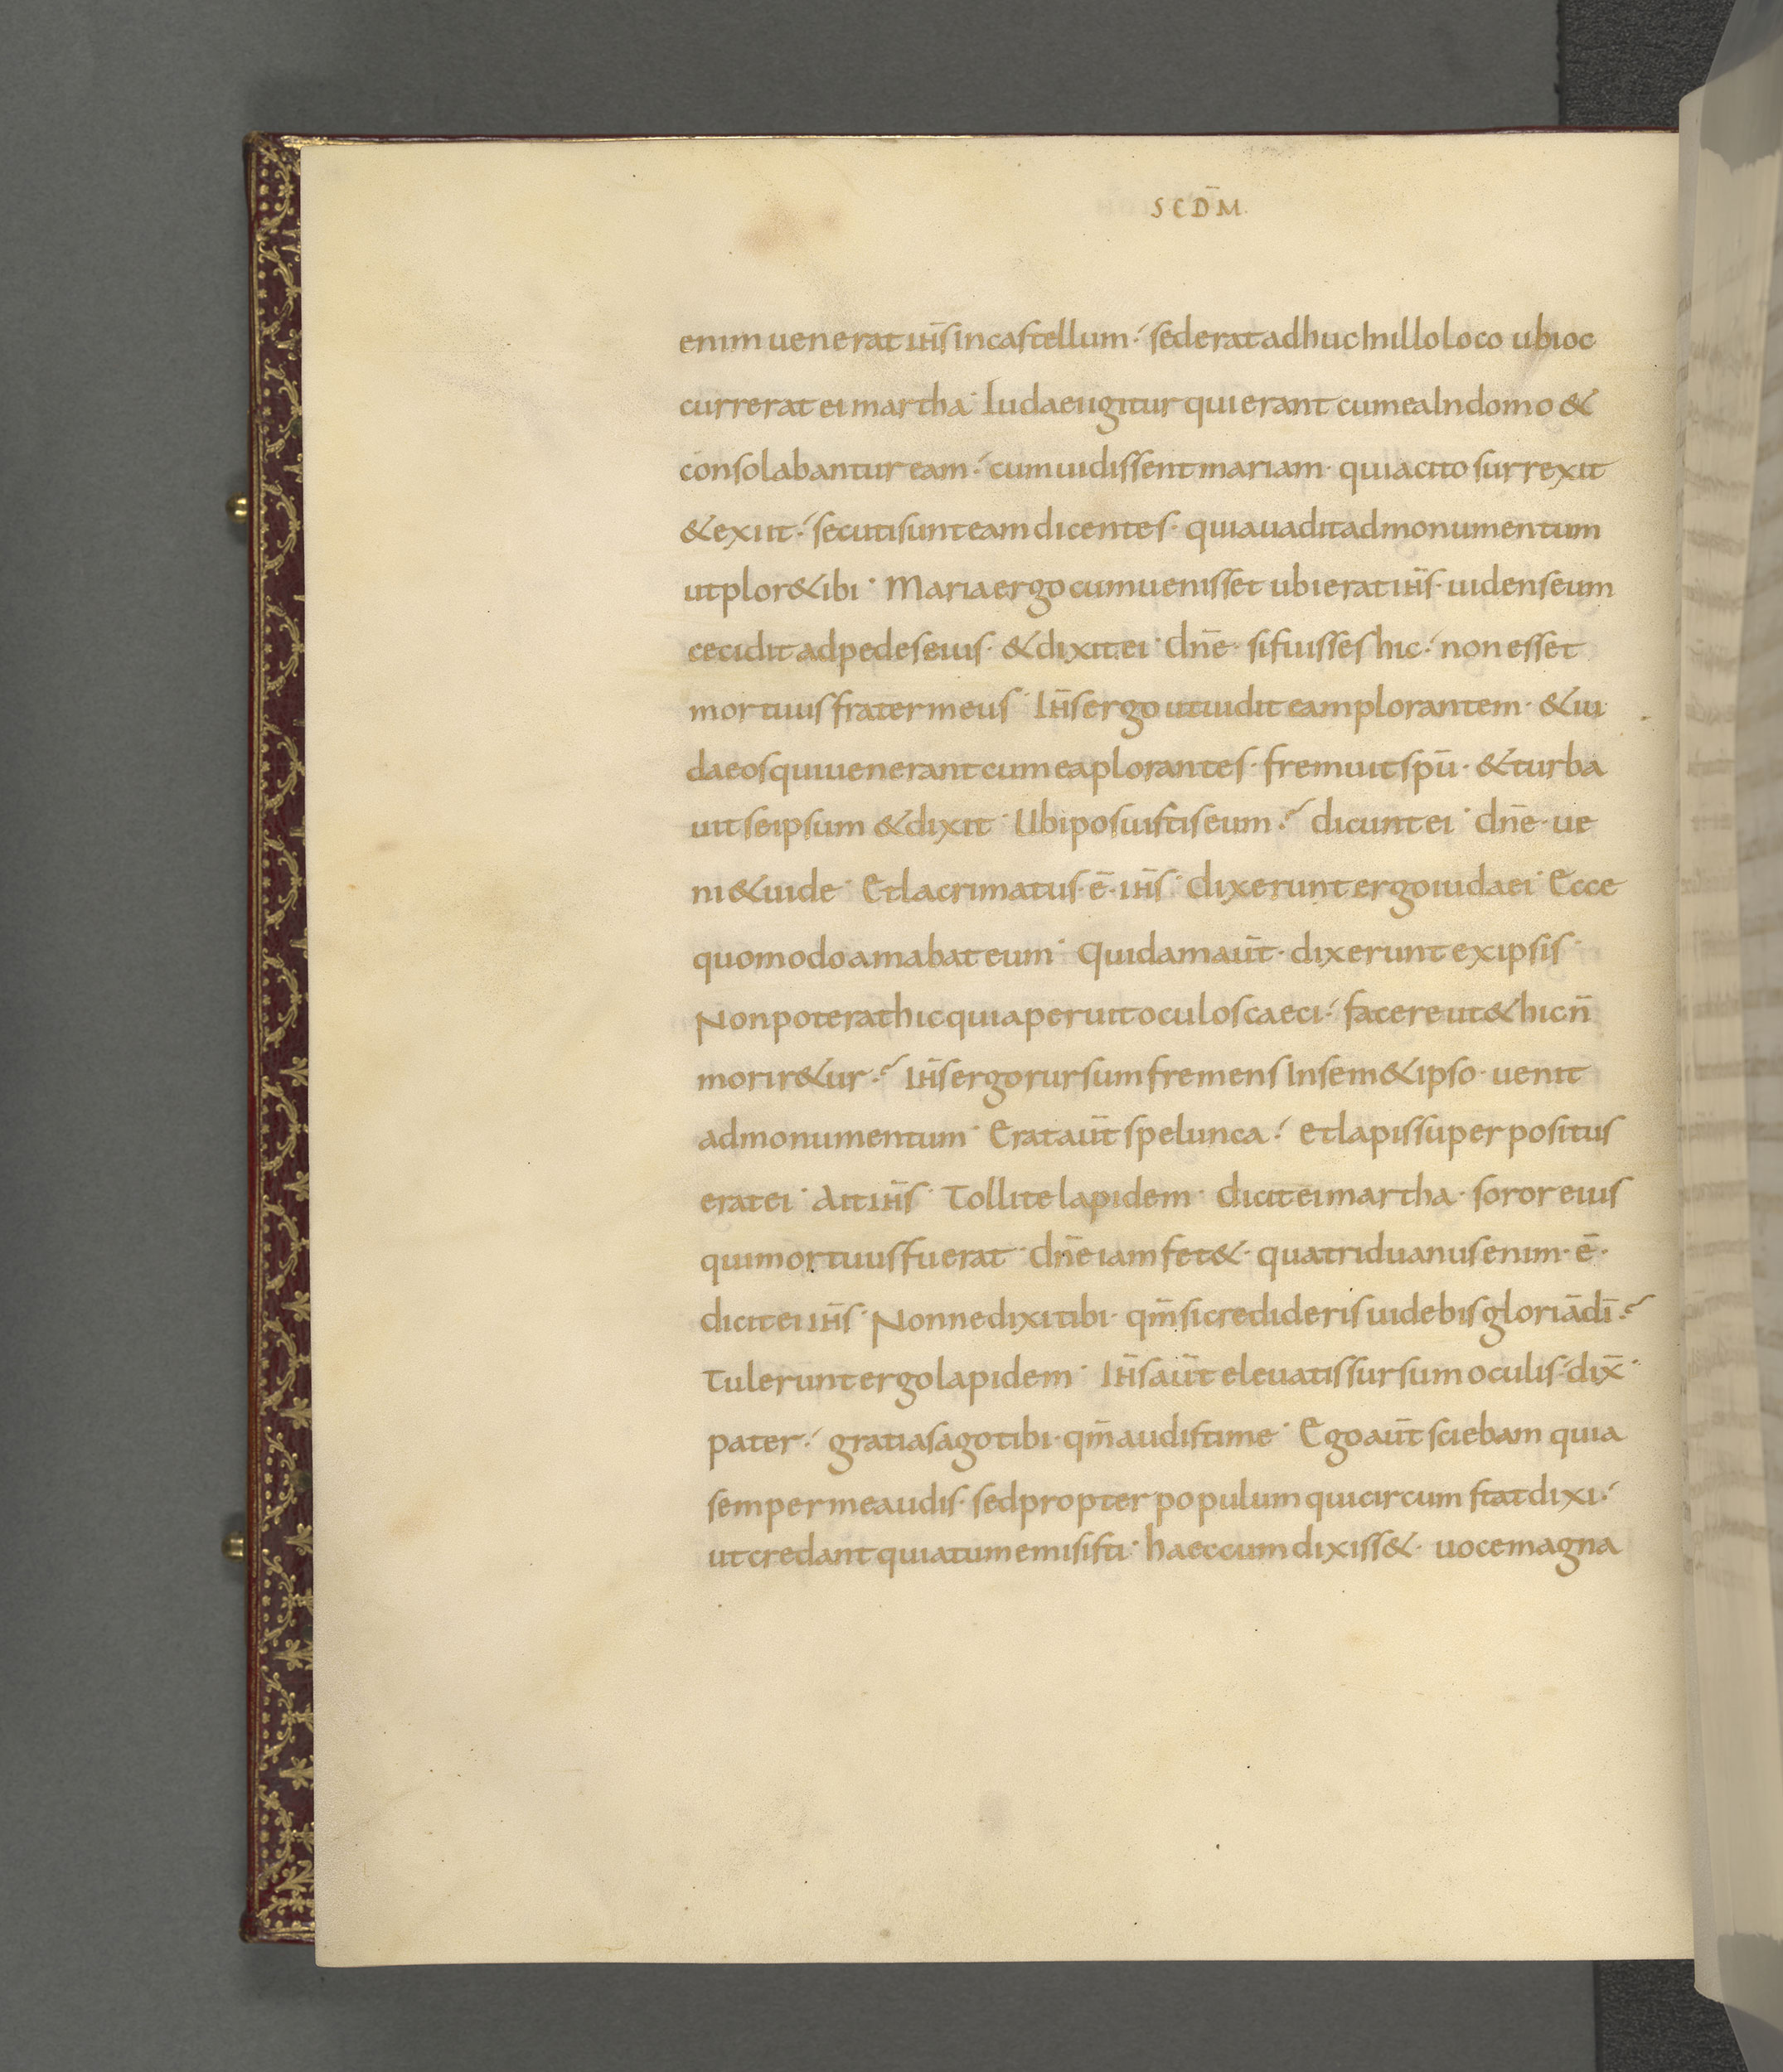 SCD̄M
enim uenerat ih̄s in castellum· sed erat adhuc In illo loco ubi oc
currerat ei martha· Iudaei igitur qui erant cum ea In domo &
consolabantur eam· cum uidissent mariam· quia cito surrexit
& exiit· secuti sunt eam dicentes· quia uadit ad monumentum
ut plor& ibi· Maria ergo cum uenisset ubi erat ih̄s· uidens eum
cecidit ad pedes eius· & dixit ei· dn̄e· si fuisses hic· non esset
mortuus frater meus· Ih̄s ergo ut uidit eam plorantem· & iu
daeos qui uenerant cum ea plorantes· fremuit spū· & turba
uit seipsum & dixit· Ubi posuistis eum? dicunt ei· dn̄e· ue
ni & uide· Et lacrimatus· ē· ih̄s· dixerunt ergo iudaei· Ecce
quomodo amabat eum· Quidam aūt· dixerunt ex ipsis·
Non poterat hic qui aperuit oculos caeci· facere ut & hic n̄
morir&ur? Ih̄s ergo rursum fremens In sem&ipso· uenit
ad monumentum· Erat aūt spelunca· et lapis superpositus
erat ei· Ait ih̄s· Tollite lapidem· dicit ei martha· soror eius
qui mortuus fuerat· dn̄e iam fet&· quatriduanus enim· ē·
dicit ei ih̄s· Nonne dixi tibi· qm̄ si credideris uidebis gloriā dī?
Tulerunt ergo lapidem· Ih̄s aūt eleuatis sursum oculis· dix̄·
pater· gratias ago tibi· qm̄ audisti me· Ego aūt sciebam quia
semper me audis· sed propter populum qui circumstat dixi·
ut credant quia tu me misisti· haec cum dixiss&· uoce magna